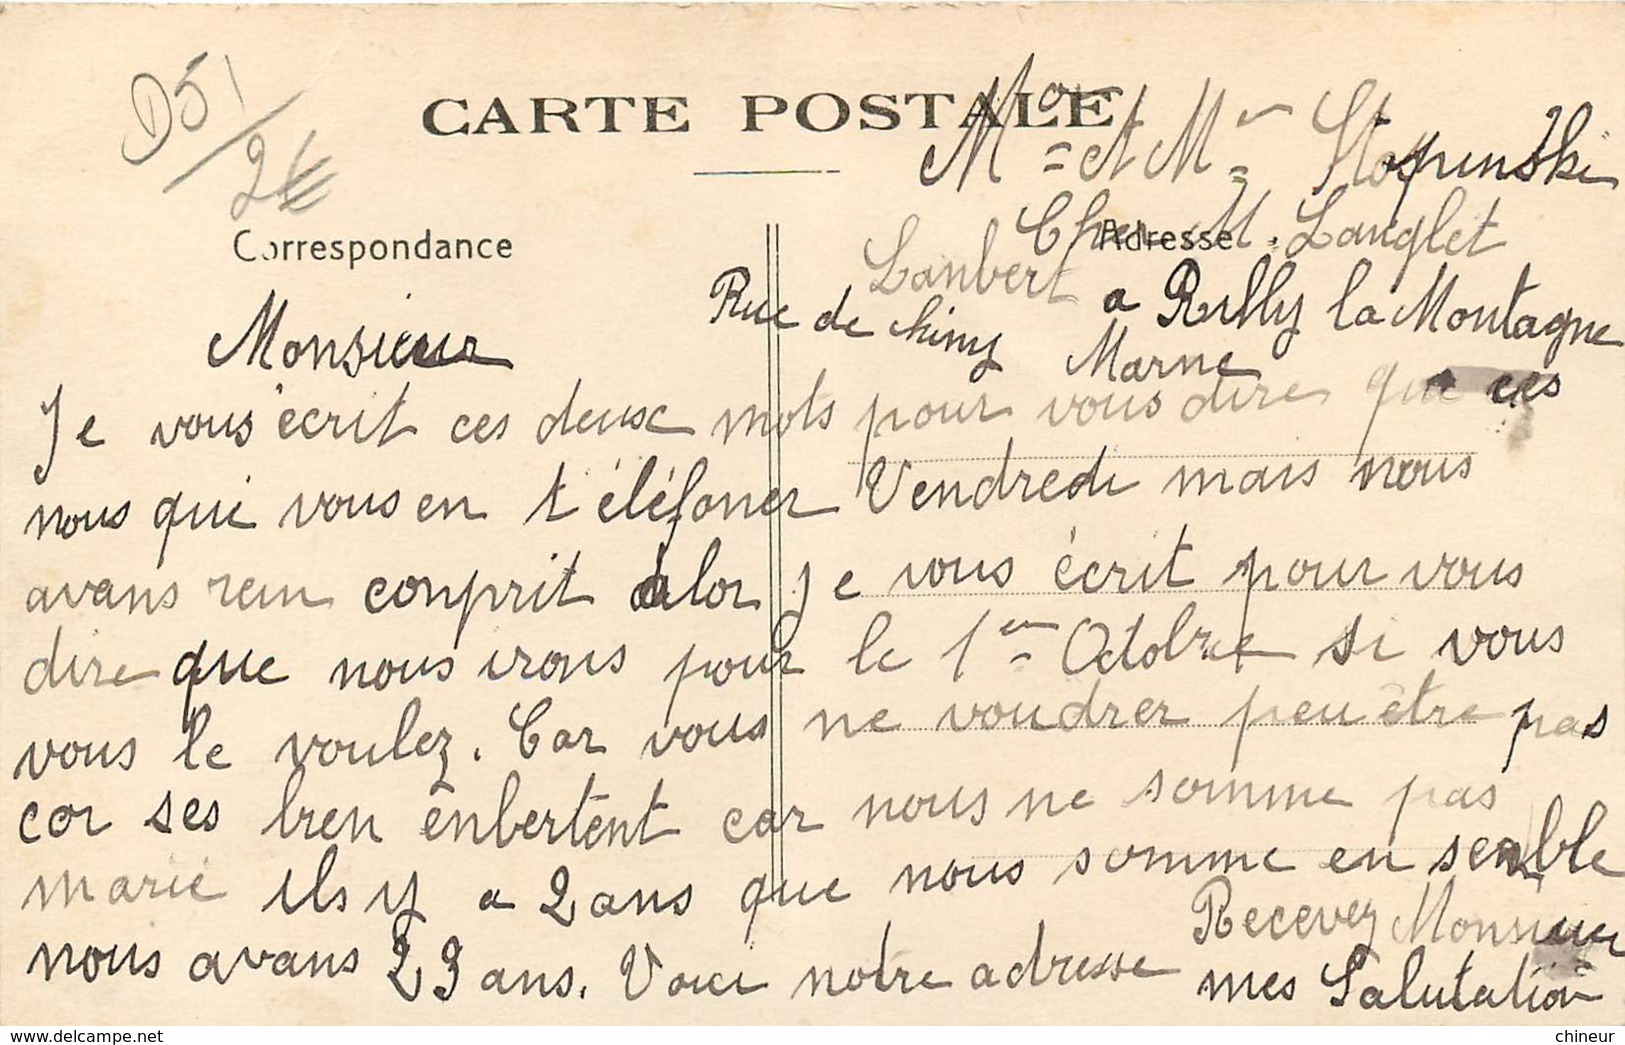 D51
2€
CARTE POSTALE
Correspondance
Adresse
Mme et Mr Stopinski
Chez M. Langlet
Lanbert a Rilly la Montagne
Rue de Chiny Marne
Monsieur
Je vous écrit ces deux mots pour vous dire que ces
nous qui vous en téléfoner Vendredi mais nous
avans rein conprit alor je vous écrit pour vous
dire que nous irons pour le 1er Octobre si vous
vous le voulez. Car vous ne voudrer peu être pas
cor ses bien enbertent car nous ne somme pas
marié ils y a 2 ans que nous somme en senble
nous avans 23 ans. Voici notre adresse
Recevez Monsieur
mes Salutation
chineur
www.delcampe.net